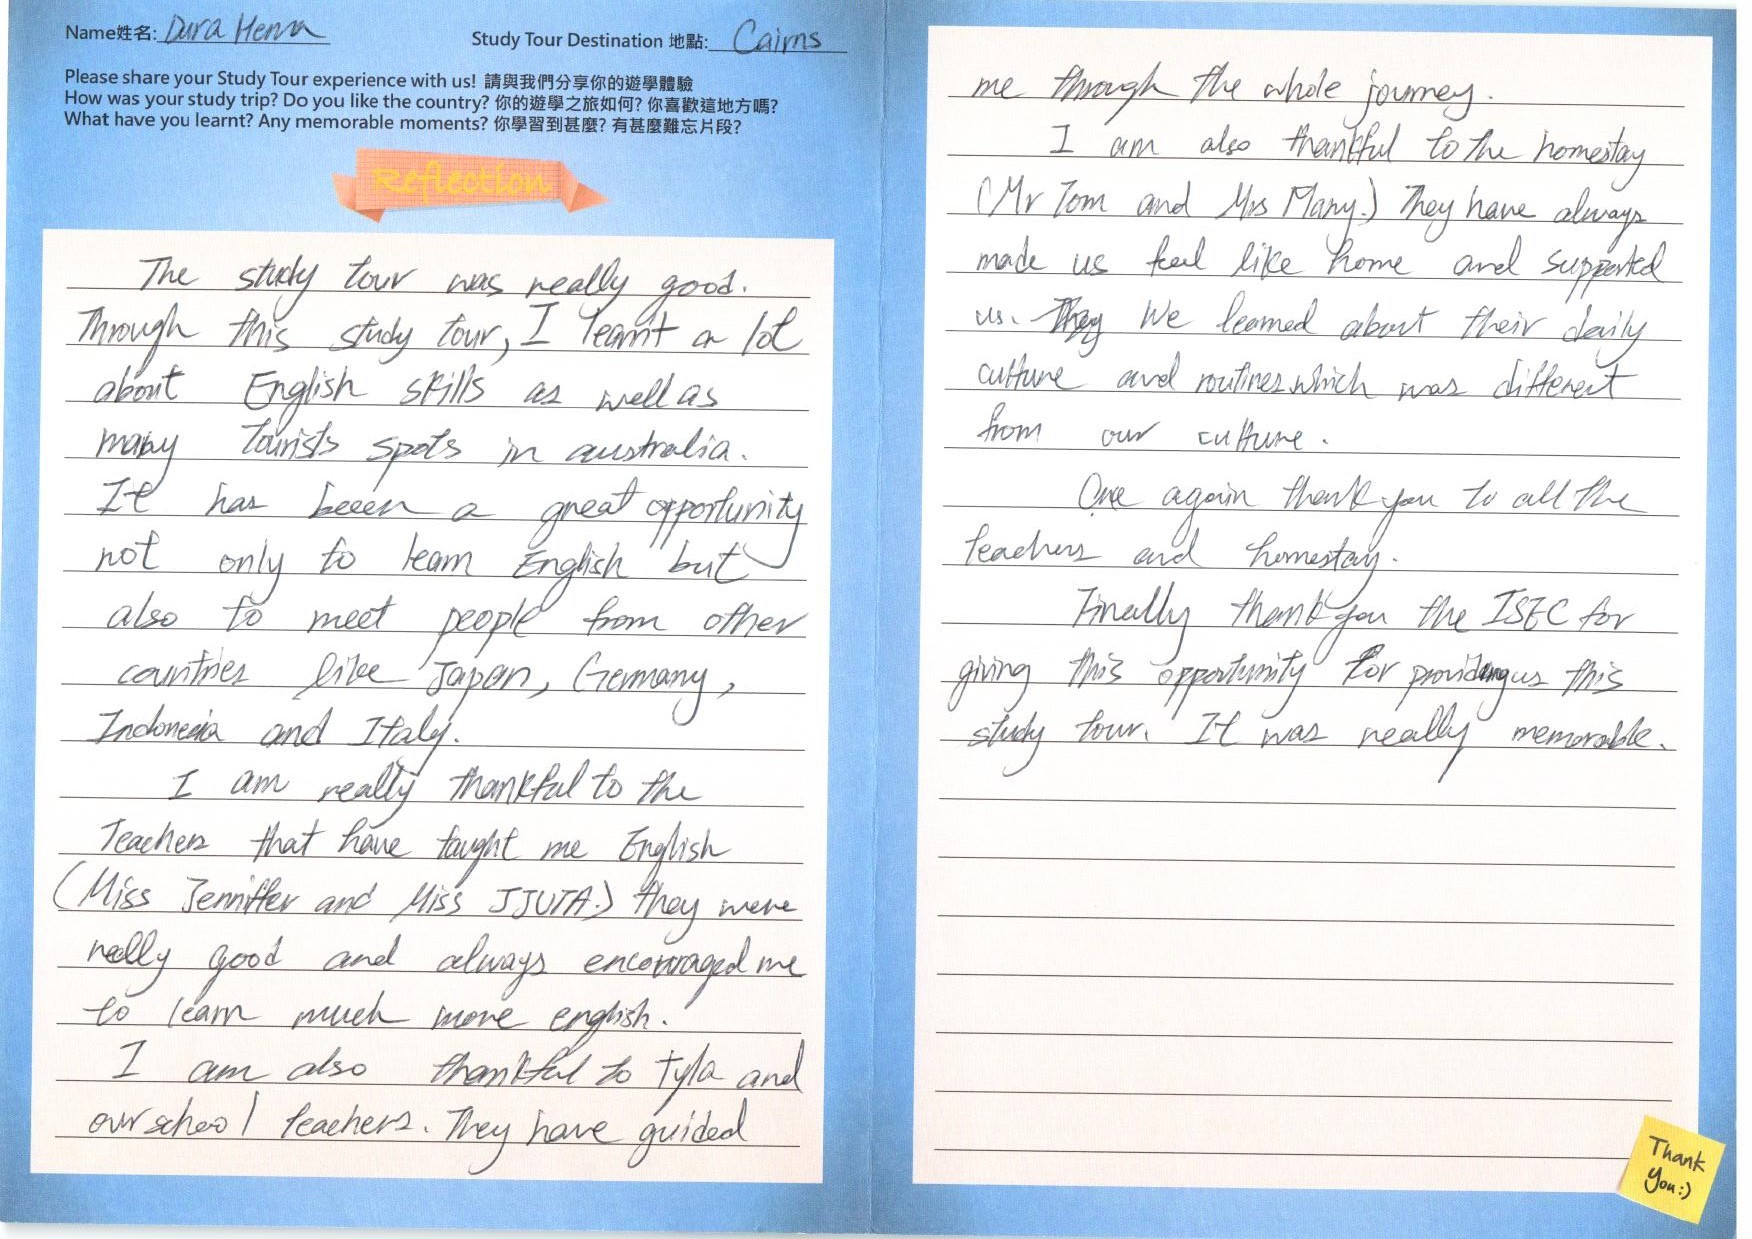 Name姓名: Dura Henna
Study Tour Destination 地點: Cairns
Please share your Study Tour experience with us! 請與我們分享你的遊學體驗
How was your study trip? Do you like the country? 你的遊學之旅如何? 你喜歡這地方嗎?
What have you learnt? Any memorable moments? 你學習到甚麼? 有甚麼難忘片段?
Reflection
The study tour was really good.
Through this study tour, I learnt a lot
about English skills as well as
many tourists spots in australia.
It has beeen a great opportunity
not only to learn English but
also to meet people from other
countries like Japan, Germany,
Indonesia and Italy.
I am really thankful to the
Teachers that have taught me English
(Miss Jenniffer and Miss JJUTA.) they were
really good and always encouraged me
to learn much more english.
I am also thankful to Tyla and
our school teachers. They have guided
me through the whole journey.
I am also thankful to the homestay
(Mr Tom and Mrs Many.) They have always
made us feel like home and supported
us. They We learned about their daily
culture and routines which was different
from our culture.
One again thank you to all the
teachers and homestay.
Finally thank you the ISEC for
giving this opportunity for providing us this
study tour. It was really memorable.
Thank
You:)